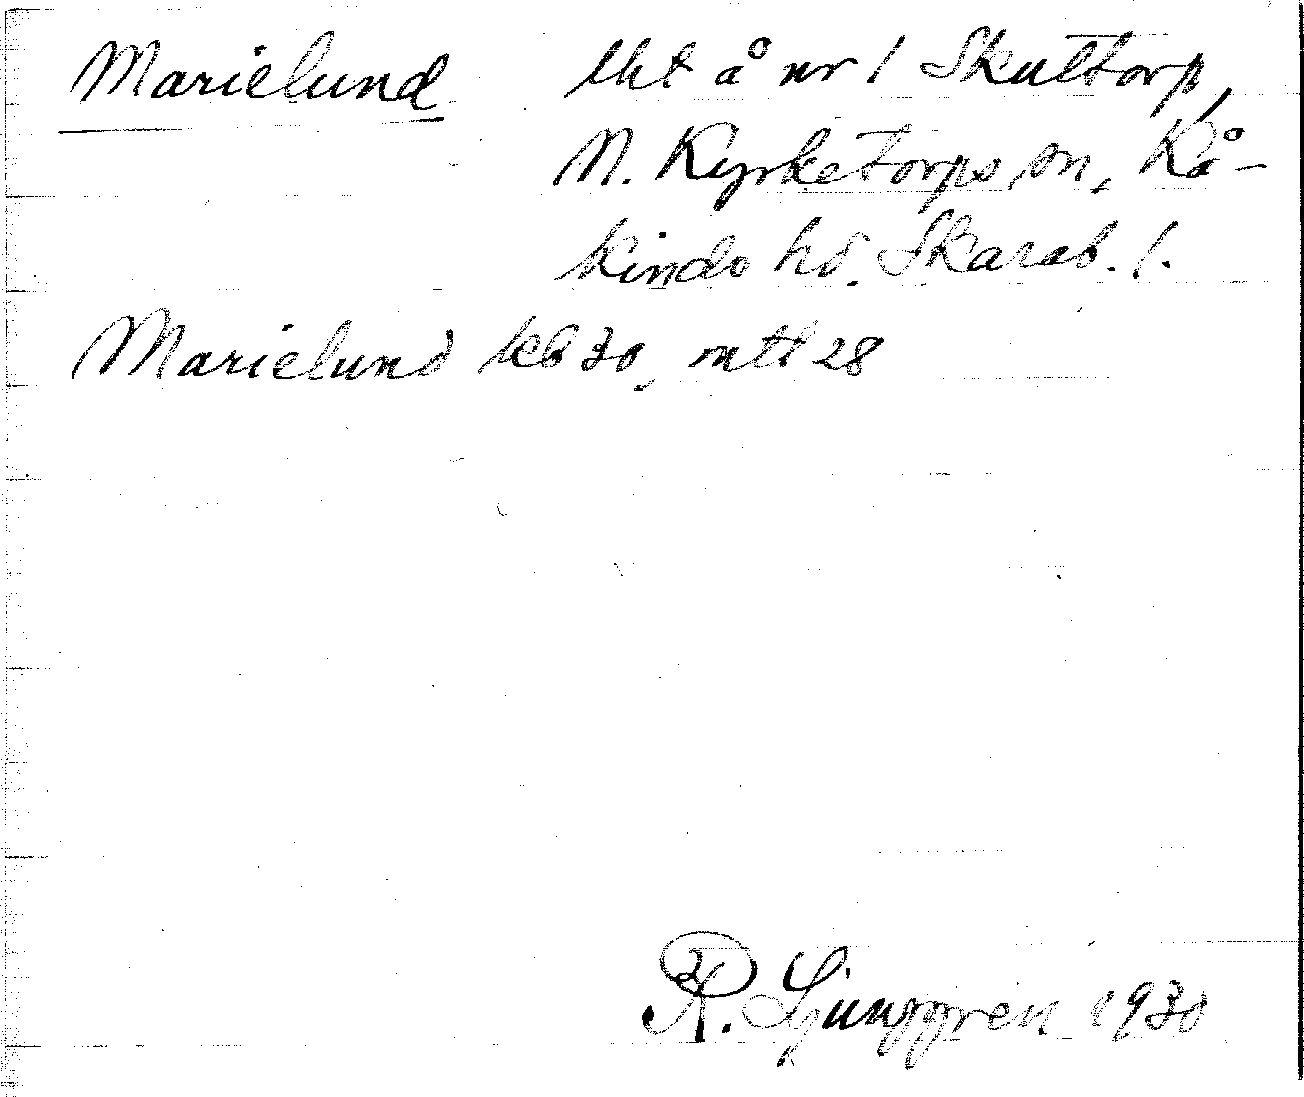 Marielund lht å nr 1 Skultorp,
N. Kyrketorps sn, Kå-
kinds hd. Skarab. l.
Marielund kb 30, mtl 28
R. Ljunggren 1930